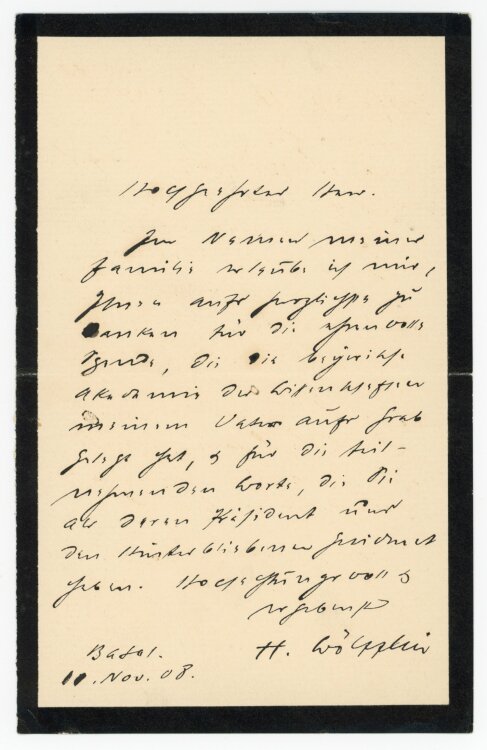 Hochgeehrter Herr.
Im Namen meiner
Familie erlaube ich mir,
Ihnen aufs herzlichste zu
danken für die ehrenvolle
Spende, die die bayerische
Akademie der Wissenschaften
meinem Vater aufs Grab
gelegt hat, & für die teil-
nehmenden Worte, die Sie
als deren Präsident uns
den Hinterbliebenen gewidmet
haben. Hochachtungsvoll &
ergebenst
H. Wölfflin
Basel.
11. Nov. 08.